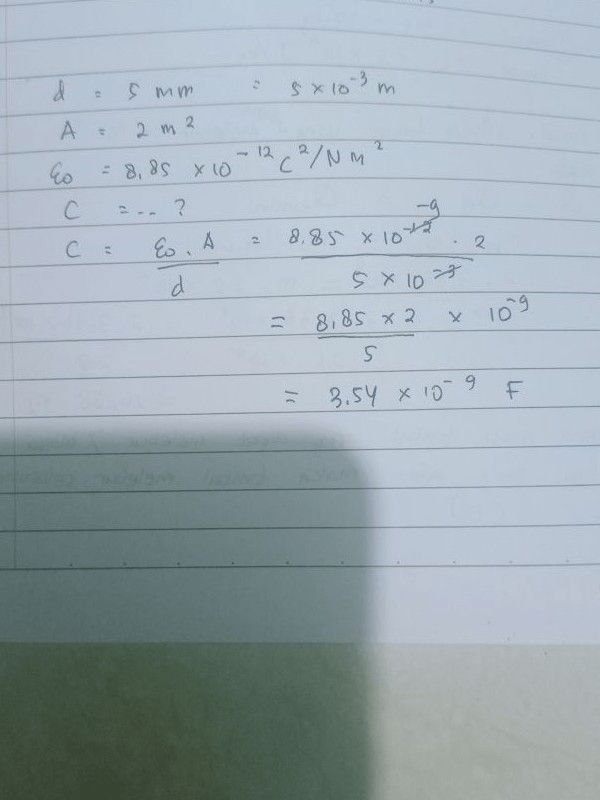 d = 5 mm = 5 × 10⁻³ m
A = 2 m²
ε₀ = 8,85 × 10⁻¹² C²/Nm²
C = -- ?
C = ε₀ . A / d = 8.85 × 10⁻¹² ⁻⁹ . 2 / 5 × 10⁻³
= 8,85 × 2 / 5 × 10⁻⁹
= 3.54 × 10⁻⁹ F